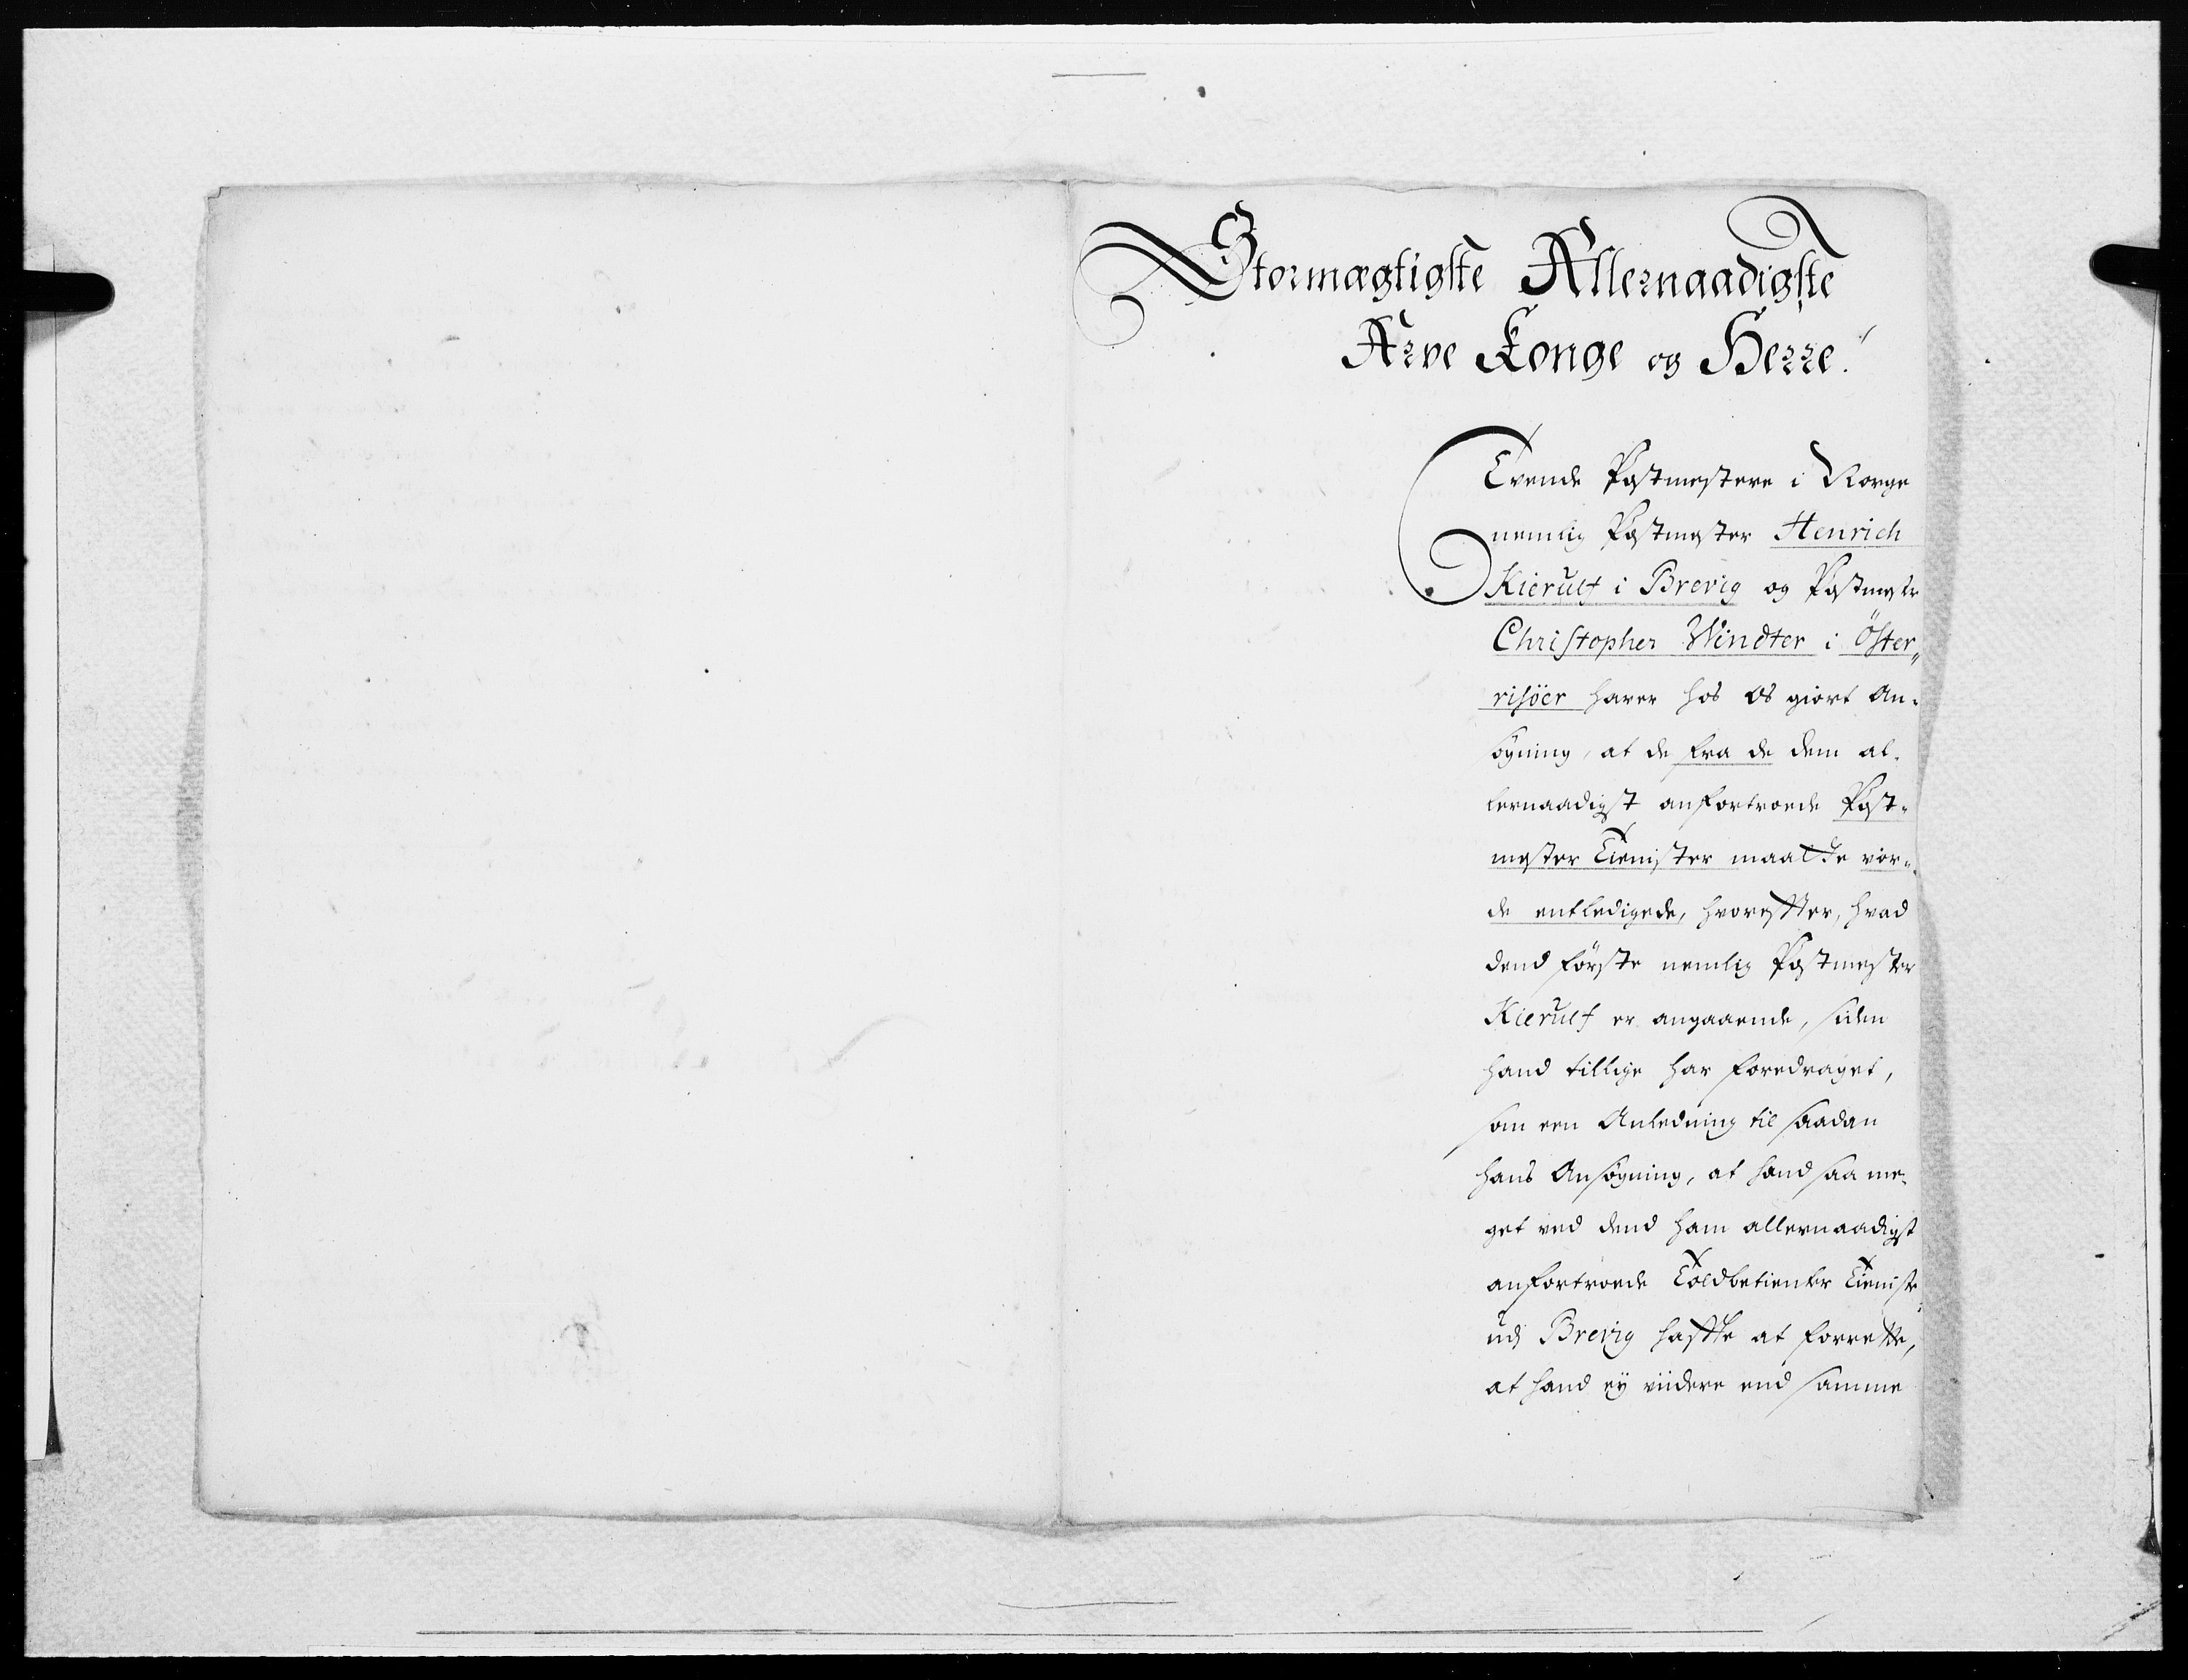 Stormægtigste Allernaadigste
Arve Konge og Herre!
Tvende Postmestere i Norge
nemlig Postmester Henrich
Kierulf i Brevig og Postmester
Christopher Windter i Öster„
risöer haver hos os giort An-
søgning, at de fra de dem al-
lernaadigst anfortroede Post-
mester Tienister maatte vor-
de entledigede, hvorefter, hvad
dend første nemlig Postmester
Kierulf er angaaende, siden
hand tillige har foredraget,
som een Anledning til saadan
hans Ansøgning, at hand saa me-
get ved dend ham allernaadigst
anfortroede Toldbetienter Tieniste
udi Brevig hafte at forrette,
at hand ey viidere end samme